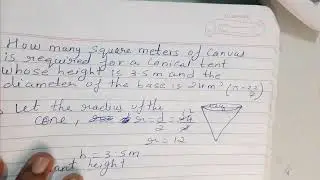 How many square meters of Canvas
is required for a conical tent
whose height is 3.5m and the
diameter of the base is 24m (π=22/7)
Let the radius of the
cone, r = d/2 = 24/2
r = 12
h = 3.5m
height